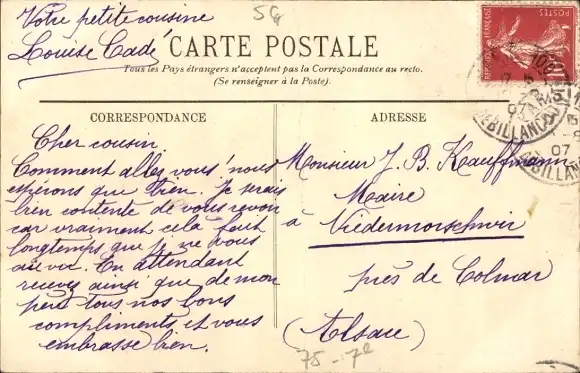 Votre petite cousine
Louise Cadé
5G
CARTE POSTALE
Tous les Pays étrangers n'acceptent pas la Correspondance au recto.
(Se renseigner à la Poste).
REPUBLIQUE FRANÇAISE
POSTES
BILLANCOURT
07
CORRESPONDANCE
Cher cousin.
Comment allez vous! nous
espérons que bien. Je serais
bien contente de vous revoir
car vraiment celà fait
longtemps que je ne vous
ai vu. En attendant
recevez ainsi que de mon
père tous nos bons
compliments et vous
embrasse bien.
ADRESSE
Monsieur J. B. Kauffmann
Maire
à Niedermorschwir
près de Colmar
(Alsace)
75-7e